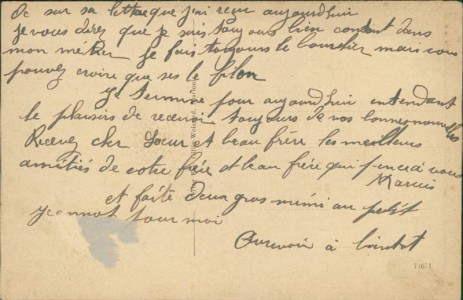 De sur sa lettre que j'ai reçu aujourd'hui
je vous direz que je suis toujours bien content dans
mon métier je fais toujours le courrier mais vous
pouvez croire que ses le filon
je termine pour aujourd'hui entendant
le plaisirs de recevoir toujours de vos bonne nouvelles
Recevez cher Soeur et beau frère les meilleurs
amitiés de votre frère et beau frère qui pense à vous
Marcis
et faite deux gros mimi au petit
jeannot pour moi
Aurevoir à bientot
71671